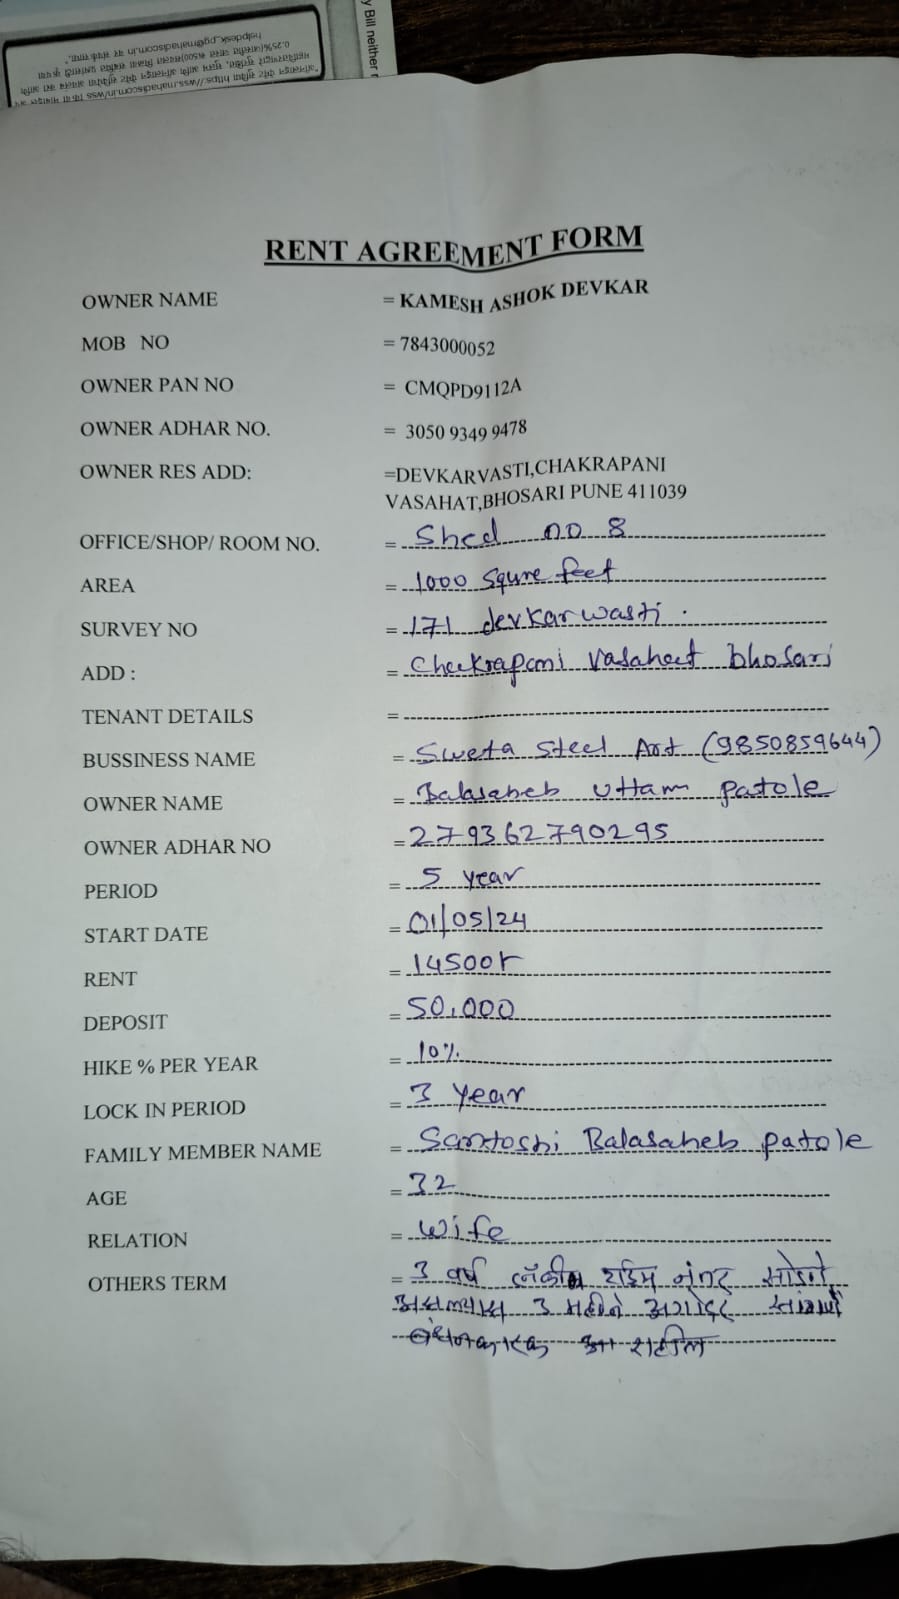 y Bill neither r
helpdesk_pg@mahadiscom.in वर संपर्क साधा.
RENT AGREEMENT FORM
OWNER NAME = KAMESH ASHOK DEVKAR
MOB NO = 7843000052
OWNER PAN NO = CMQPD9112A
OWNER ADHAR NO. = 3050 9349 9478
OWNER RES ADD: =DEVKARVASTI,CHAKRAPANI
VASAHAT,BHOSARI PUNE 411039
OFFICE/SHOP/ ROOM NO. = Shed no 8
AREA = 1000 Squre feet
SURVEY NO = 171 devkarwasti.
ADD : = Chekrapani vasahet bhosari
TENANT DETAILS =
BUSSINESS NAME = Sweta Steel Art (9850859644)
OWNER NAME = Balasaheb uttam patole
OWNER ADHAR NO = 279362790295
PERIOD = 5 year
START DATE = 01/05/24
RENT = 14500r
DEPOSIT = 50,000
HIKE % PER YEAR = 10%
LOCK IN PERIOD = 3 year
FAMILY MEMBER NAME = Santoshi Balasaheb patole
AGE = 32
RELATION = wife
OTHERS TERM = 3 वर्ष लॉकीन टाईम नंतर सोडने
असल्यास 3 महीने अगोदर सांगणे
बंधनकारक राहील